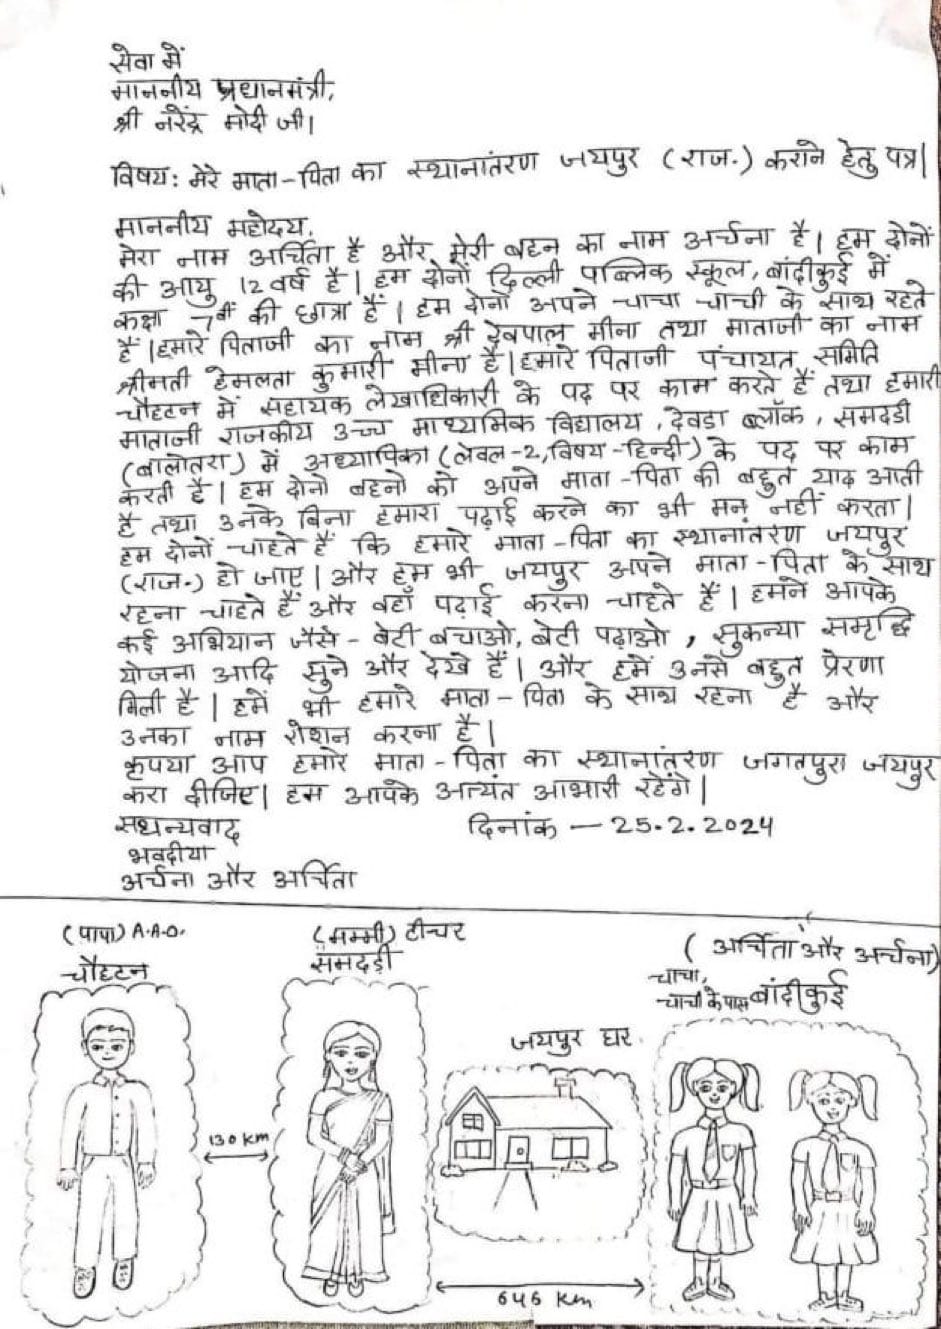 सेवा में
माननीय प्रधानमंत्री,
श्री नरेंद्र मोदी जी।
विषय: मेरे माता-पिता का स्थानांतरण जयपुर (राज.) कराने हेतु पत्र।
माननीय महोदय,
मेरा नाम अर्चिता है और मेरी बहन का नाम अर्चना है। हम दोनों
की आयु 12 वर्ष है। हम दोनों दिल्ली पब्लिक स्कूल, बांदीकुई में
कक्षा 7वीं की छात्रा हैं। हम दोनों अपने चाचा चाची के साथ रहते
हैं। हमारे पिताजी का नाम श्री देवपाल मीना तथा माताजी का नाम
श्रीमती हेमलता कुमारी मीना है। हमारे पिताजी पंचायत समिति
चौहटन में सहायक लेखाधिकारी के पद पर काम करते हैं तथा हमारी
माताजी राजकीय उच्च माध्यमिक विद्यालय, देवडा ब्लॉक, समदडी
(बालोतरा) में अध्यापिका (लेवल-2, विषय-हिन्दी) के पद पर काम
करती है। हम दोनो बहनो को अपने माता-पिता की बहुत याद आती
है तथा उनके बिना हमारा पढ़ाई करने का भी मन नहीं करता।
हम दोनों चाहते हैं कि हमारे माता-पिता का स्थानांतरण जयपुर
(राज.) हो जाए। और हम भी जयपुर अपने माता-पिता के साथ
रहना चाहते हैं और वहाँ पढ़ाई करना चाहते हैं। हमने आपके
कई अभियान जैसे - बेटी बचाओ, बेटी पढ़ाओ, सुकन्या समृद्धि
योजना आदि सुने और देखे हैं। और हमें उनसे बहुत प्रेरणा
मिली है। हमें भी हमारे माता-पिता के साथ रहना है और
उनका नाम रोशन करना है।
कृपया आप हमारे माता-पिता का स्थानांतरण जगतपुरा जयपुर
करा दीजिए। हम आपके अत्यंत आभारी रहेंगे।
सधन्यवाद दिनांक - 25.2.2024
भवदीया
अर्चना और अर्चिता
(पापा) A.A.O. (मम्मी) टीचर (अर्चिता और अर्चना)
चौहटन समदड़ी चाचा,
चाची के पास बांदीकुई
जयपुर घर
130 km
646 km